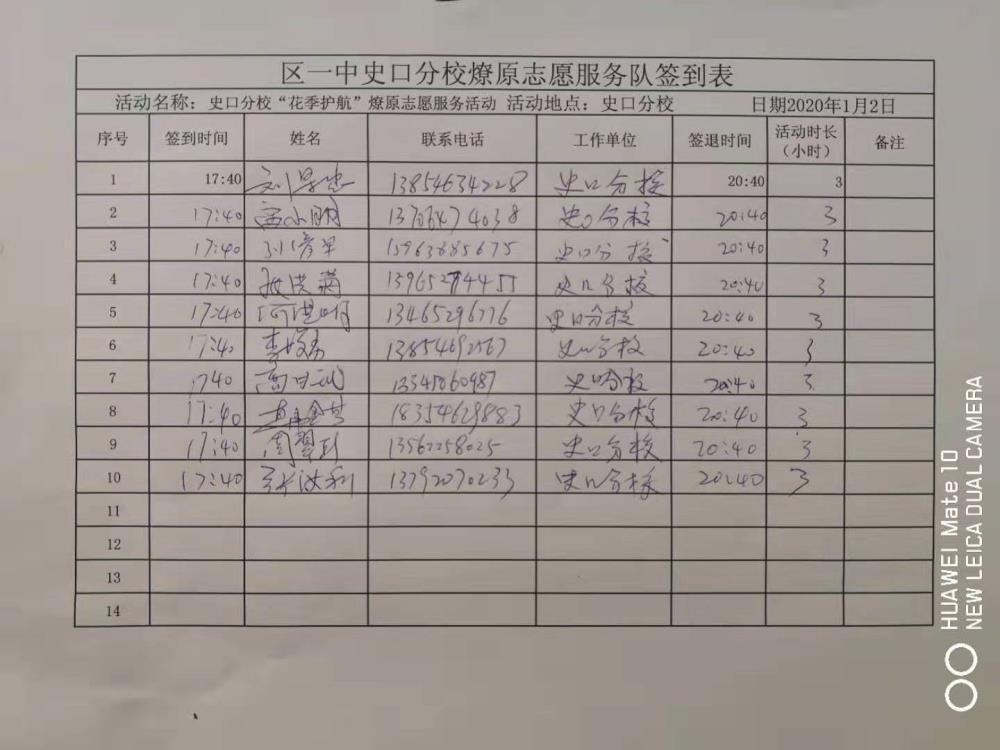 区一中史口分校燎原志愿服务队签到表
活动名称：史口分校“花季护航”燎原志愿服务活动 活动地点：史口分校 日期2020年1月2日
序号 签到时间 姓名 联系电话 工作单位 签退时间 活动时长（小时） 备注
1 17:40 13854634228 史口分校 20:40 3
2 17:40 史口分校 20:40 3
3 17:40 史口分校 20:40 3
4 17:40 史口分校 20:40 3
5 17:40 13465296776 史口分校 20:40 3
6 17:40 13854692567 史口分校 20:40 3
7 1740 史口分校 20:40 3
8 17:40 18354629883 史口分校 20:40 3
9 17:40 13562258025 史口分校 20:40 3
10 17:40 13792070233 史口分校 20:40 3
11
12
13
14
HUAWEI Mate 10
NEW LEICA DUAL CAMERA